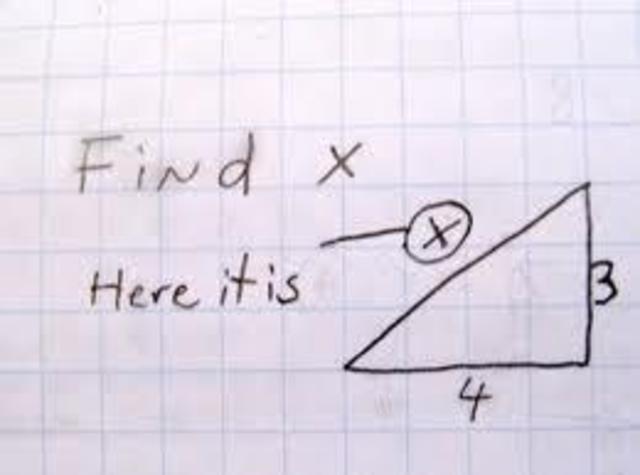 Find x
x
Here it is
3
4